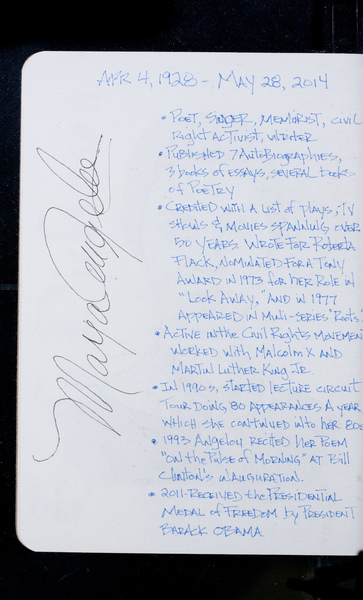 APR 4, 1928 - MAY 28, 2014
Maya Angelou
• POET, SINGER, MEMOIRIST, CIVIL
RIGHT ACTIVIST, WRITER
• PUBLISHED 7 AUTOBIOGRAPHIES,
3 books of ESSAYS, SEVERAL books
of POETRY
• CREDITED WITH A LIST of PLAYS, TV
SHOWS & MOVIES SPANNING OVER
50 YEARS. WROTE FOR ROBERTA
FLACK, NOMINATED FOR A TONY
AWARD IN 1973 for her ROLE IN
"LOOK AWAY," AND IN 1977
APPEARED IN MINI-SERIES "ROOTS"
• ACTIVE IN the CIVIL RIGHTS MOVEMENT
WORKED with MALCOLM X AND
MARTIN LUTHER KING JR.
• IN 1990s, STARTED LECTURE CIRCUIT
TOUR DOING 80 APPEARANCES A YEAR
WHICH SHE CONTINUED INTO her 80s
• 1993 ANGELOU RECITED HER POEM
"ON the PULSE OF MORNING" AT BILL
CLINTON'S INAUGURATION.
• 2011-RECEIVED the PRESIDENTIAL
MEDAL of FREEDOM by PRESIDENT
BARACK OBAMA